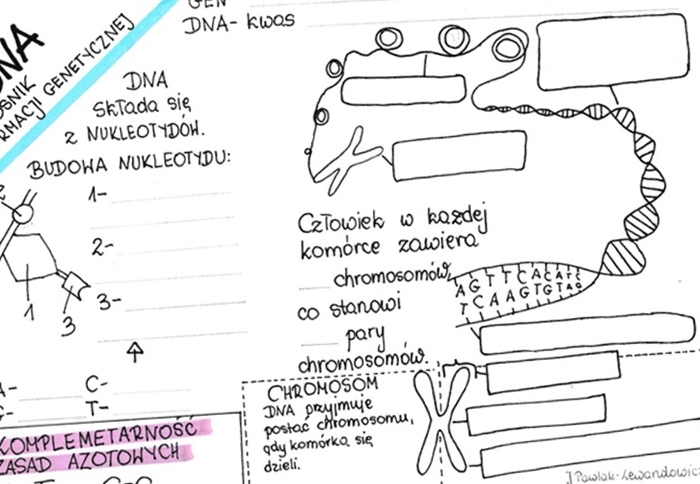 GEN
DNA- kwas
DNA
OŚNIK
RMACJI GENETYCZNEJ
DNA
składa się
z NUKLEOTYDÓW.
BUDOWA NUKLEOTYDU:
1-
2-
3-
1
3
A- C-
G- T-
KOMPLEMETARNOŚĆ
ZASAD AZOTOWYCH
Człowiek w każdej
komórce zawiera
___ chromosomów,
co stanowi
___ pary
chromosomów.
AGTTCACATC
TCAAGTGTAG
CHROMOSOM
DNA przyjmuje
postać chromosomu,
gdy komórka się
dzieli.
J Pawlak-Lewandowicz